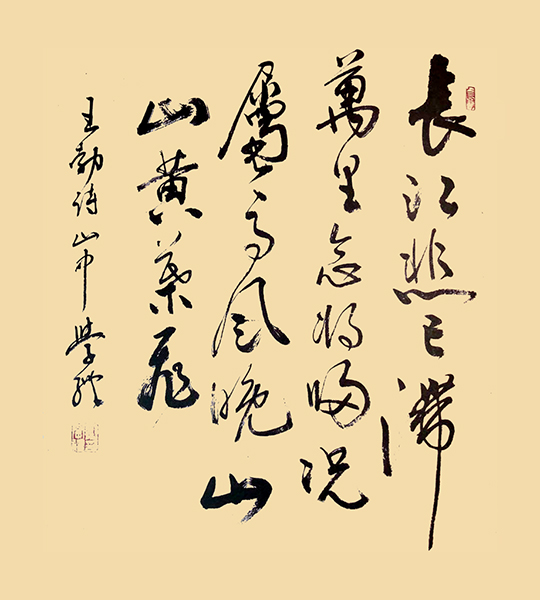 長江悲已滯
萬里念將歸况
屬高風晚山
山黄葉飛
王勃詩山中 學